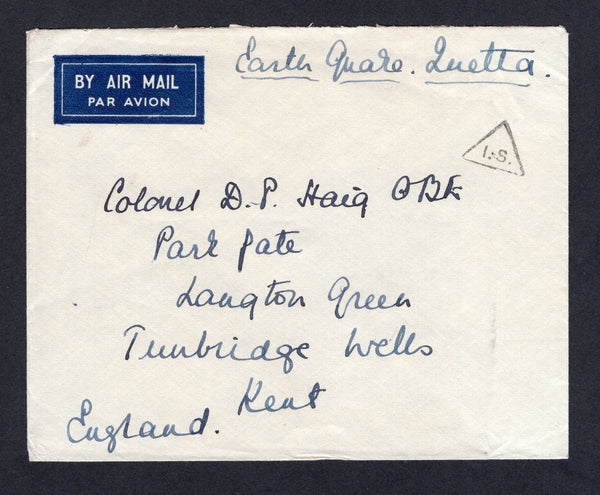 Earth Quake. Quetta.
BY AIR MAIL
PAR AVION
I.S.
Colonel D.P. Haig OBE
Park Gate
Langton Green
Tunbridge Wells
Kent
England.